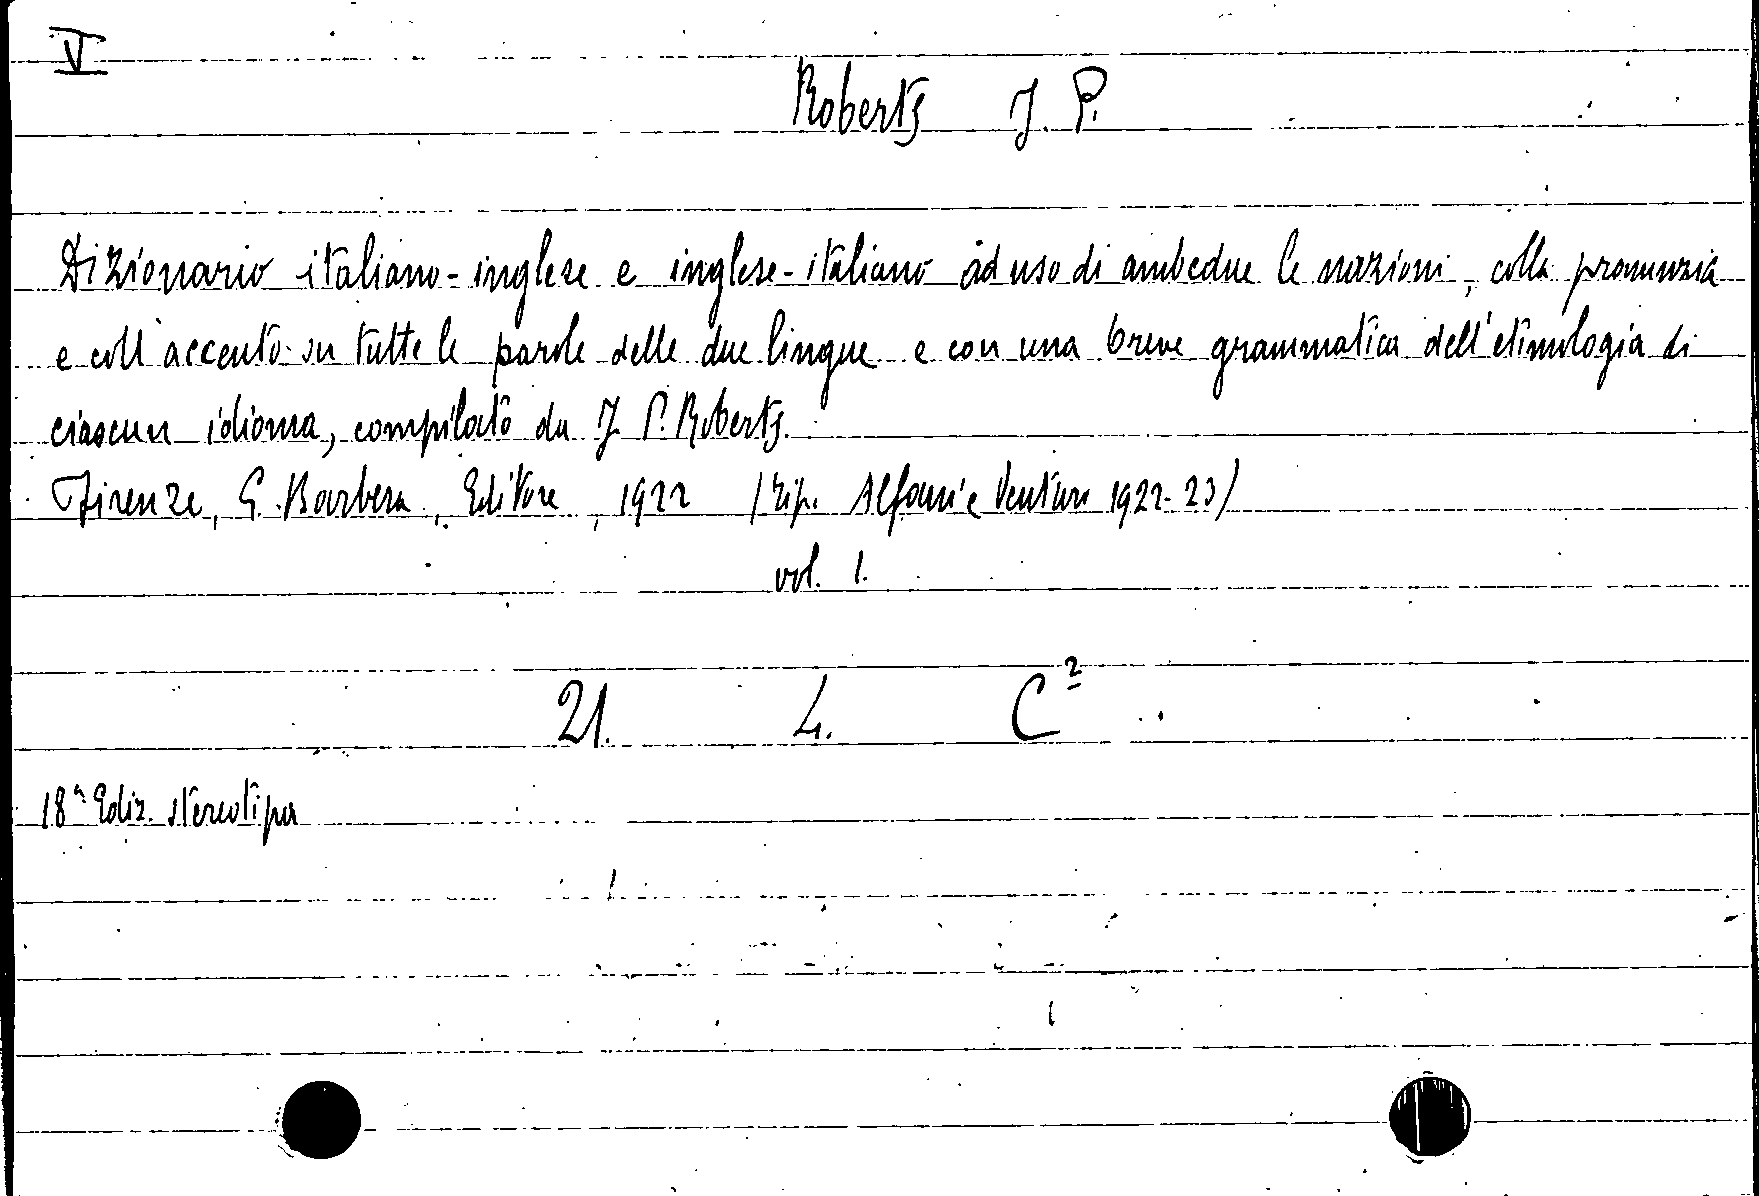 V
Roberts J. P.
Dizionario italiano-inglese e inglese-italiano ad uso di ambedue le nazioni, colla pronunzia
e coll'accento su tutte le parole delle due lingue e con una breve grammatica dell'etimologia di
ciascun idioma, compilato da J. P. Roberts.
Firenze, G. Barbera, Editore, 1922 (Tip. Alfani e Venturi 1922-23)
vol. 1.
21. 4. C²
18ª Ediz. stereotipa